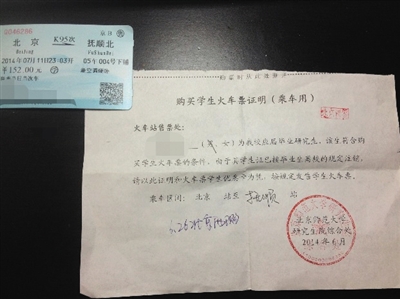 J046286
北京 K95次 抚顺北
Beijing
2014年07月11日23:03开 05车004号下铺
￥152.00元
购买学生火车票证明（乘车用）
火车站售票处:
(男、女)为我校应届毕业研究生，该生符合购
买学生火车票的条件，由于其学生证已按毕业生离校的规定注销，
请以此证明和火车票学生优惠卡为凭，按规定发售学生火车票。
乘车区间: 北京 站至 抚顺 站
北京师范大学
研究生院综合处
2014年6月